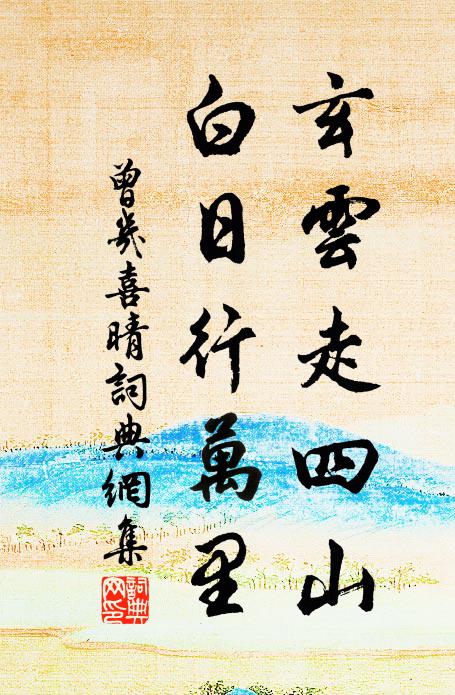 玄雲走四山
白日行萬里
曾幾喜晴詞典網集
詞典網印